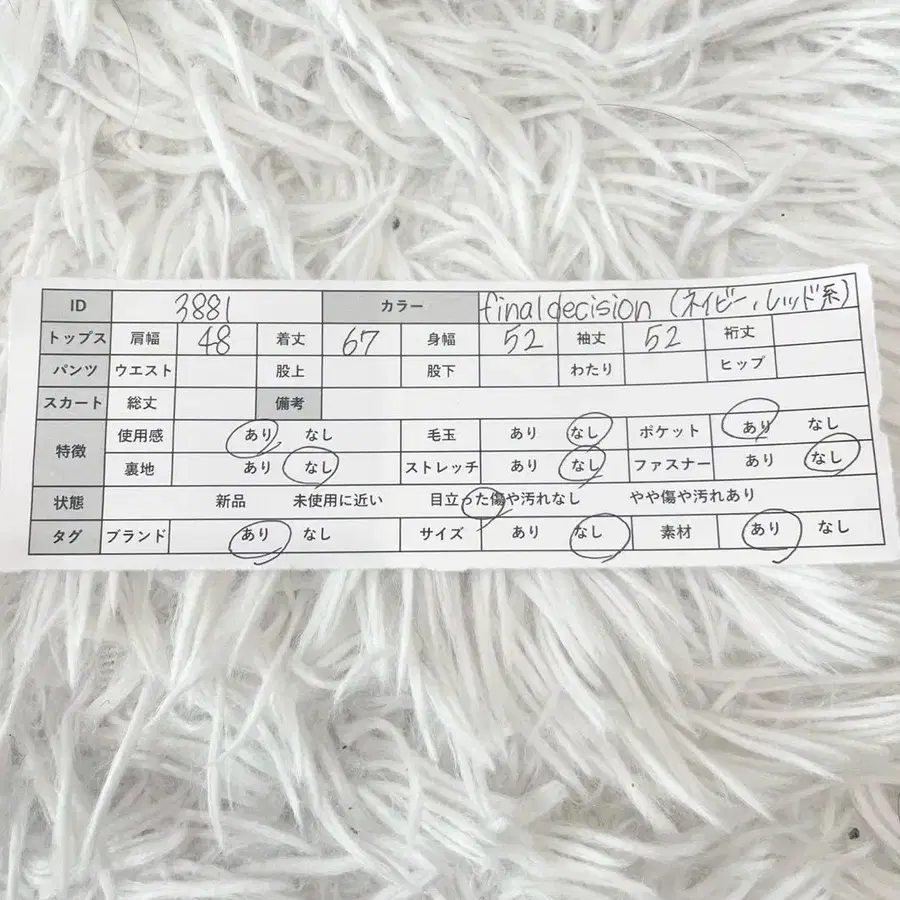 ID 3881 カラー finaldecision (ネイビー、レッド系)
トップス 肩幅 48 着丈 67 身幅 52 袖丈 52 裄丈
パンツ ウエスト 股上 股下 わたり ヒップ
スカート 総丈 備考
特徴 使用感 あり なし 毛玉 あり なし ポケット あり なし
裏地 あり なし ストレッチ あり なし ファスナー あり なし
状態 新品 未使用に近い 目立った傷や汚れなし やや傷や汚れあり
タグ ブランド あり なし サイズ あり なし 素材 あり なし